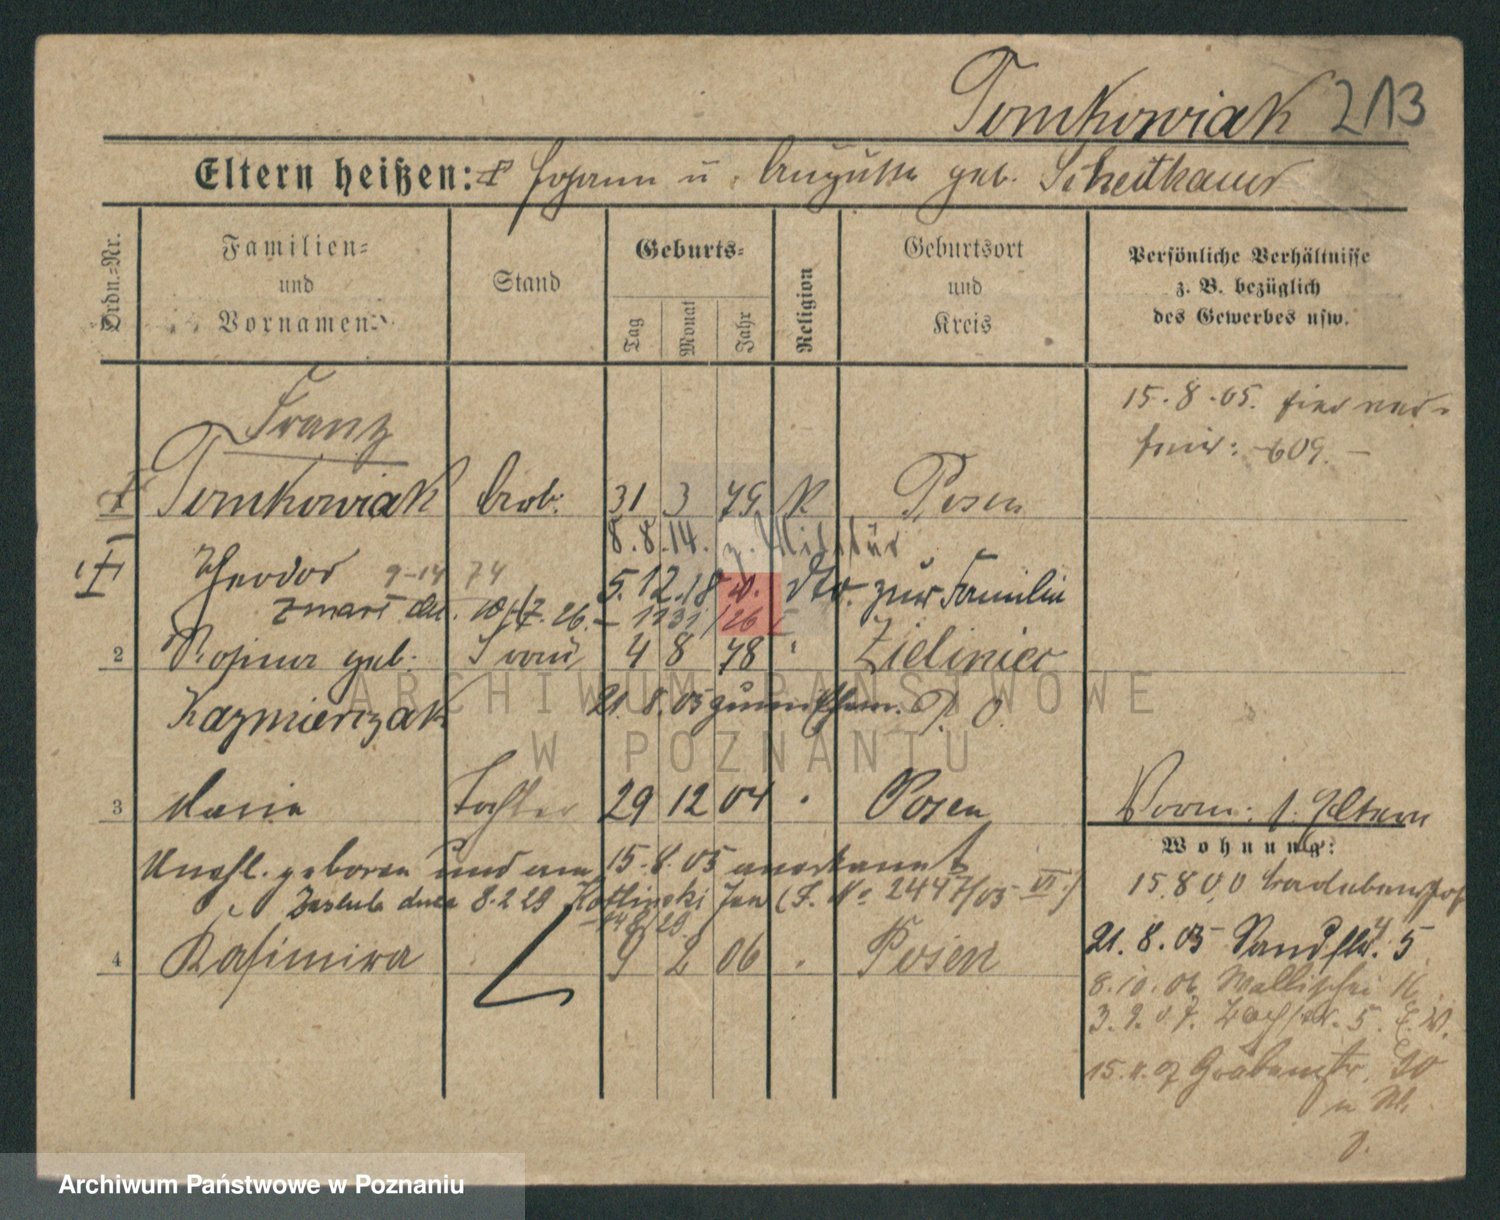 Tomkowiak 213
Eltern heißen: Johann u. Auguste geb. Scheithauer
Ordn.=Nr.
Familien=
und
Vornamen
Stand
Geburts=
Tag
Monat
Jahr
Religion
Geburtsort
und
Kreis
Persönliche Verhältnisse
z. B. bezüglich
des Gewerbes usw.
15.8.05. hier
609.
Franz
Tomkowiak Arb. 31 3 79 K Posen
8.8.14. z. Militär
Theodor 9-14 74
5.12.18 v. dto. zur Familie
zmarł
2 geb. Frau 4 8 78 Zielinice
Kazmierczak
21.8.05
3 Marie Tochter 29 12 04 Posen
Vorm: s. Eltern
Wohnung:
Unehl. geboren und am 15.8.05 anerkannt
Zaślub. dnia 8.2.29 Kotlinski Jan (F. No 2447/05 VI)
4 Kasimira 9 2 06 Posen
15.8.00
21.8.05 Sandstr. 5
8.10.06 Wallischei 16
3.9.07. 5.
15.11.07 Grabenstr. 20
ARCHIWUM PAŃSTWOWE
W POZNANIU
Archiwum Państwowe w Poznaniu